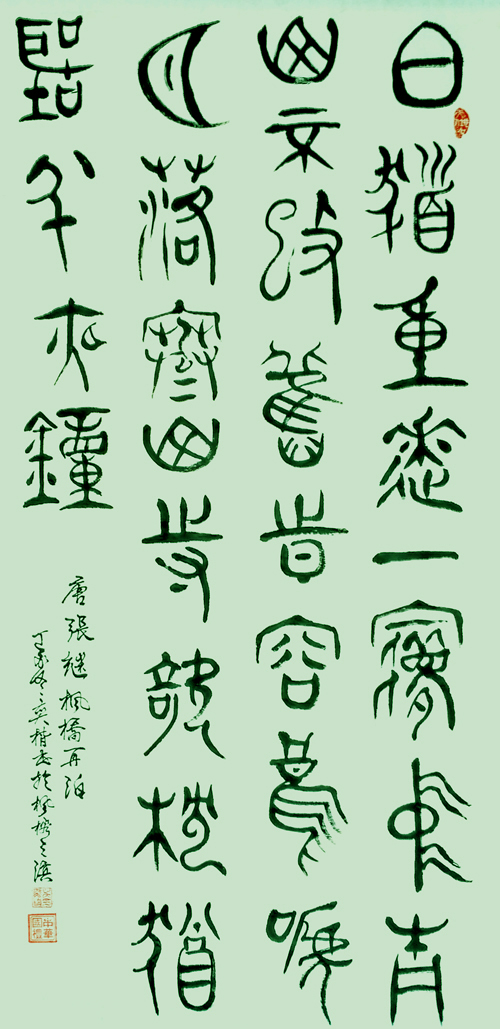 白髮重來一夢中青
山不改舊時容烏啼
月落寒山寺欹枕猶
聽半夜鐘
唐張繼楓橋再泊
丁亥冬奕楷書於楓橋之濱